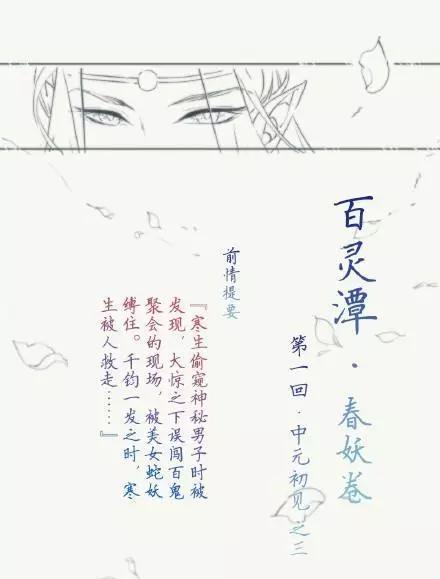 百灵潭·春妖卷
第一回·中元初见之三
前情提要
『寒生偷窥神秘男子时被
发现，大惊之下误闯百鬼
聚会的现场，被美女蛇妖
缚住。千钧一发之时，寒
生被人救走……』